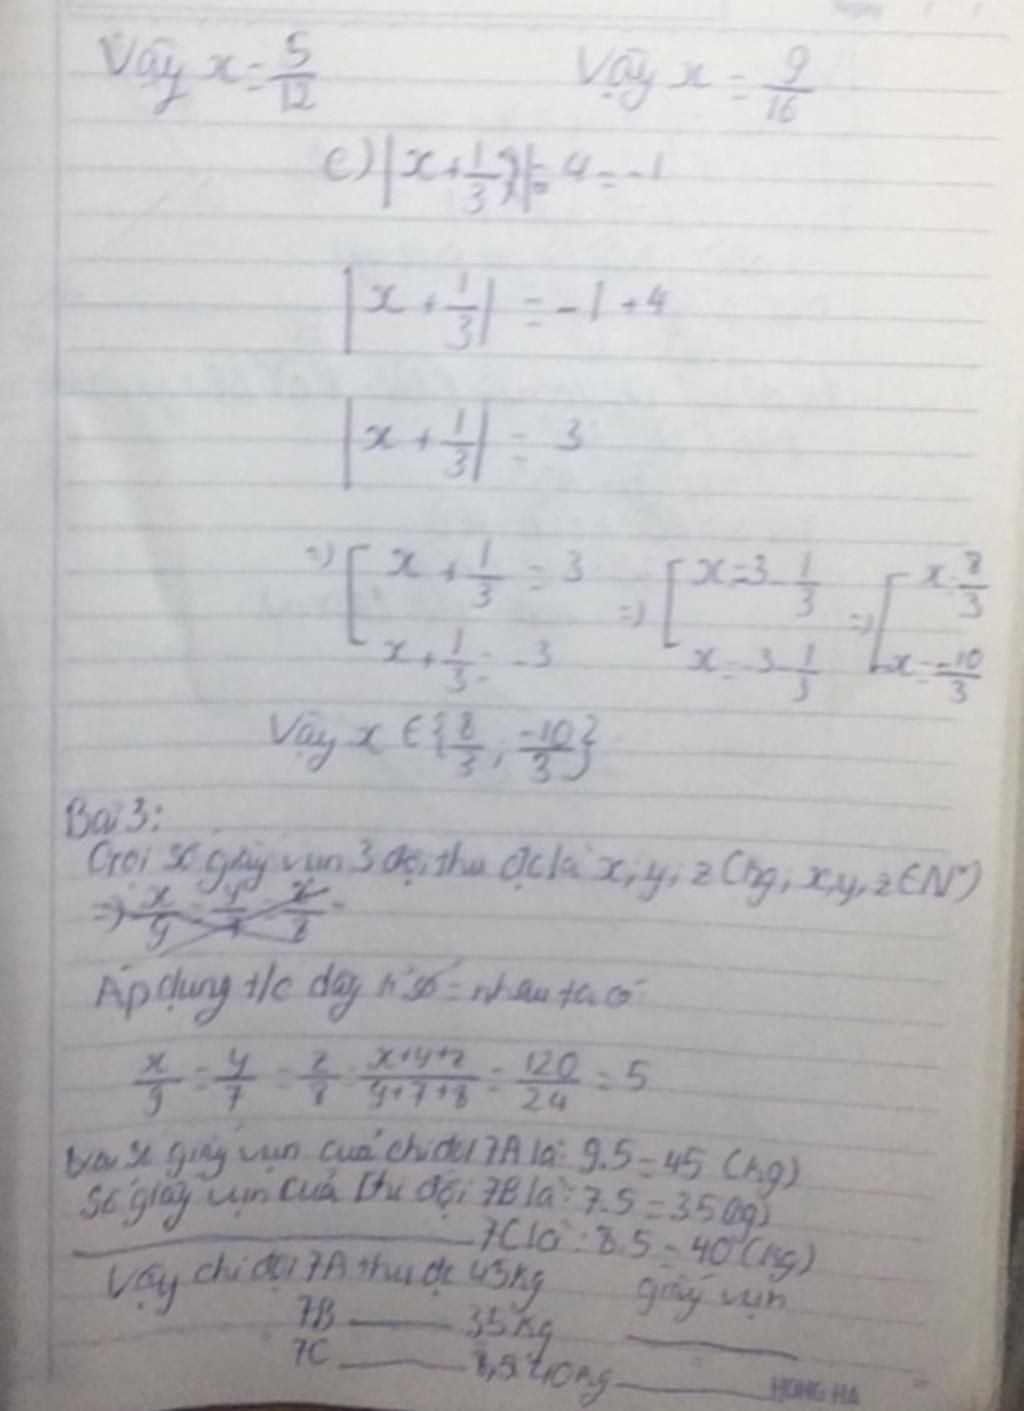 Vậy x = 5/12 Vậy x = 9/16
c) |x + 1/3| - 4 = -1
|x + 1/3| = -1 + 4
|x + 1/3| = 3
=> [ x + 1/3 = 3 => [ x = 3 - 1/3 => [ x = 8/3
x + 1/3 = -3 x = -3 - 1/3 x = -10/3
Vậy x ∈ {8/3 ; -10/3}
Bài 3:
Gọi số giấy vụn 3 đội thu đc là x, y, z (kg, x, y, z ∈ N*)
=> x/9 = y/7 = z/8 =
Áp dụng t/c dãy tỉ số = nhau ta có
x/9 = y/7 = z/8 = x+y+z/9+7+8 = 120/24 = 5
số giấy vụn của chi đội 7A là: 9.5 = 45 (kg)
Số giấy vụn của chi đội 7B là: 7.5 = 35 (kg)
7C là: 8.5 = 40 (kg)
Vậy chi đội 7A thu đc 45kg giấy vụn
7B 35kg
7C 40kg
HONG HA